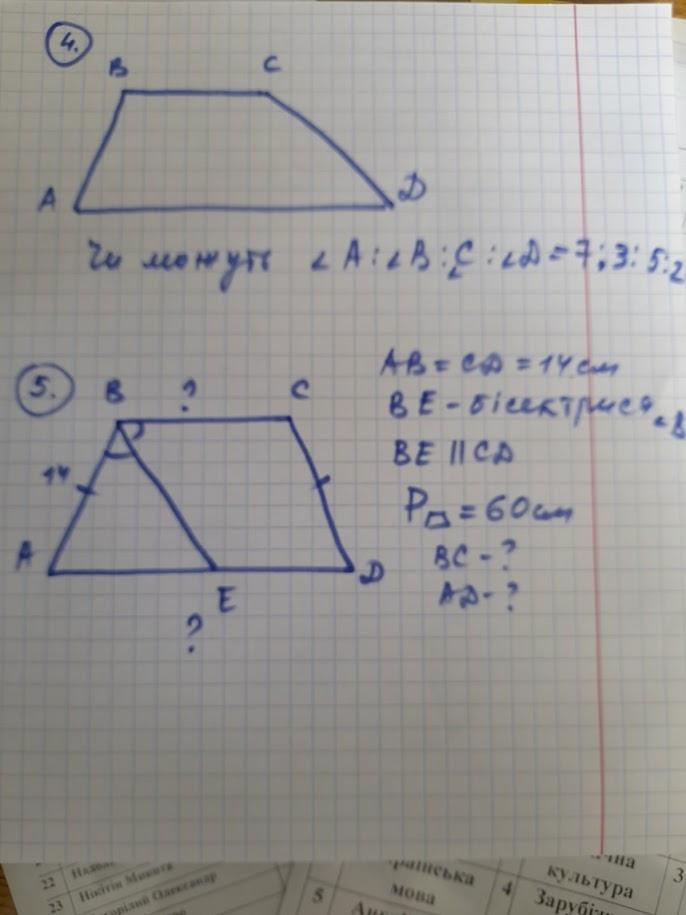 4.
B C
A D
Чи можуть ∠A:∠B:∠C:∠D=7:3:5:2
5.
B ? C
14
A E D
?
AB=CD=14см
BE-бісектриса ∠B
BE||CD
P▱=60см
BC-?
AD-?
22
23 Нікітін Микита
Олександр
мова
5
4
культура
3